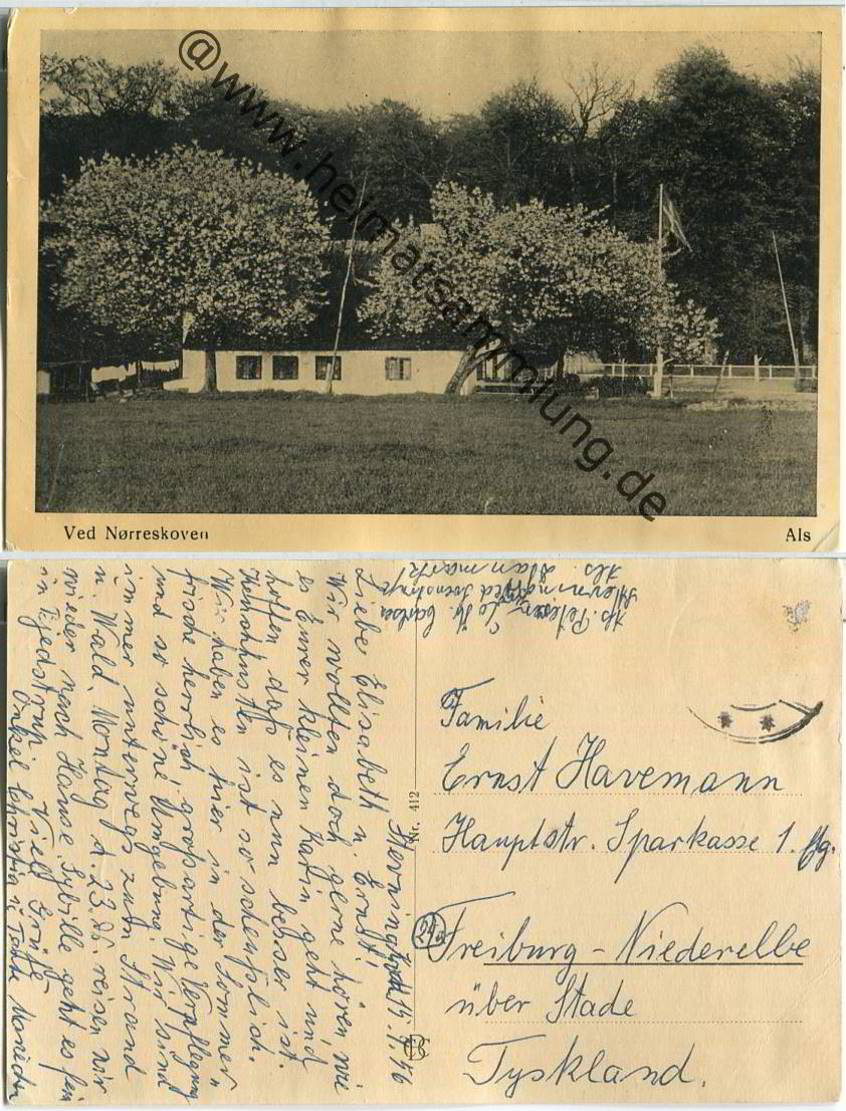 @www.heimatsammlung.de
Ved Nørreskoven
Als
Hp. Petersen
Als. Danmark
Nr. 412
19.7.56
Liebe Elisabeth u. Ernst!
Wir wollten doch gerne hören wie
es Eurer kleinen Karin geht und
hoffen, daß es nun besser ist.
Keuchhusten ist so scheußlich.
Wir haben es hier in der Sommer„
frische herrlich, großartige Verpflegung
und so schöne Umgebung. Wir sind
immer unterwegs zum Strand
u. Wald. Montag d. 23. ds. reisen wir
wieder nach Hause. Sybille geht es fein
in Tjedstrup. Viele Grüße
Onkel Christian u. Tante
Familie
Ernst Havemann
Hauptstr. Sparkasse 1. Etg.
Freiburg - Niederelbe
über Stade
Tyskland.